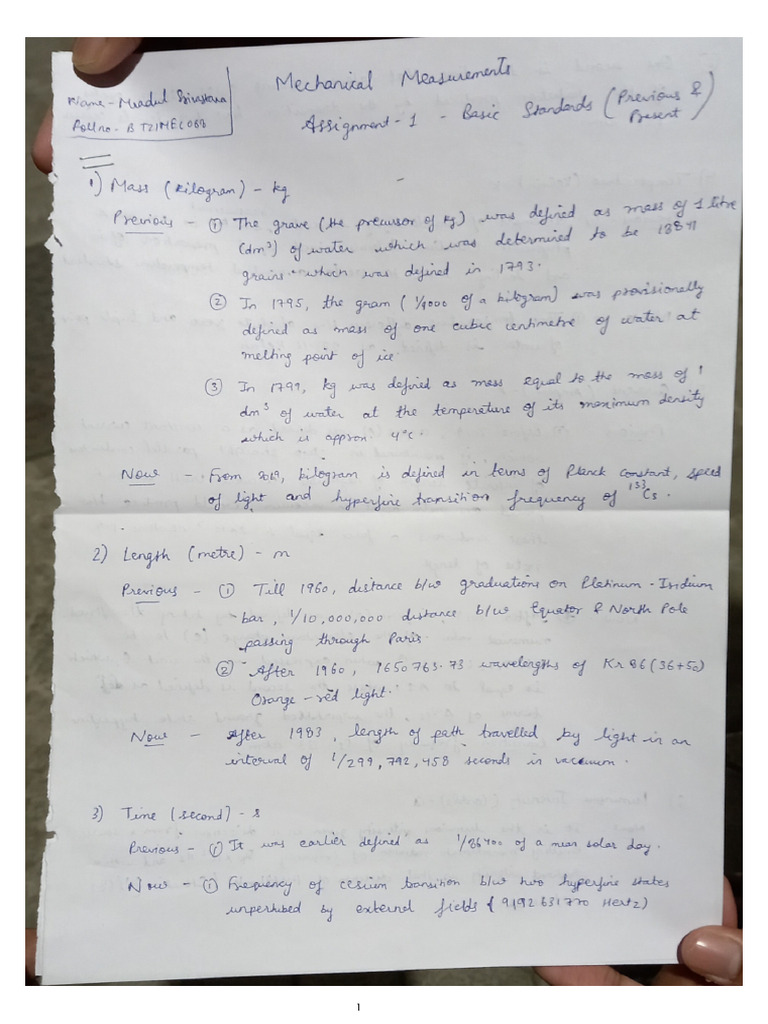 Name - Mradul Srivastava
Roll no. - BT21MEC088
Mechanical Measurements
Assignment - 1 - Basic Standards (Previous & Present)
1) Mass (kilogram) - kg
Previous - ① The grave (the precursor of kg) was defined as mass of 1 litre
(dm³) of water which was determined to be 18841
grains which was defined in 1793.
② In 1795, the gram (1/1000 of a kilogram) was provisionally
defined as mass of one cubic centimetre of water at
melting point of ice.
③ In 1799, kg was defined as mass equal to the mass of 1
dm³ of water at the temperature of its maximum density
which is approx. 4°c.
Now - From 2019, kilogram is defined in terms of Planck constant, speed
of light and hyperfine transition frequency of ¹³³Cs.
2) Length (metre) - m
Previous - ① Till 1960, distance b/w graduations on Platinum - Iridium
bar, 1/10,000,000 distance b/w Equator & North Pole
passing through Paris.
② After 1960, 1650763.73 wavelengths of Kr 86 (36+50)
Orange - red light.
Now - After 1983, length of path travelled by light in an
interval of 1/299,792,458 seconds in vaccum.
3) Time (second) - s
Previous - ① It was earlier defined as 1/86400 of a mean solar day.
Now - ① Frequency of cesium transition b/w two hyperfine states
unperturbed by external fields (9192631770 Hertz)
1